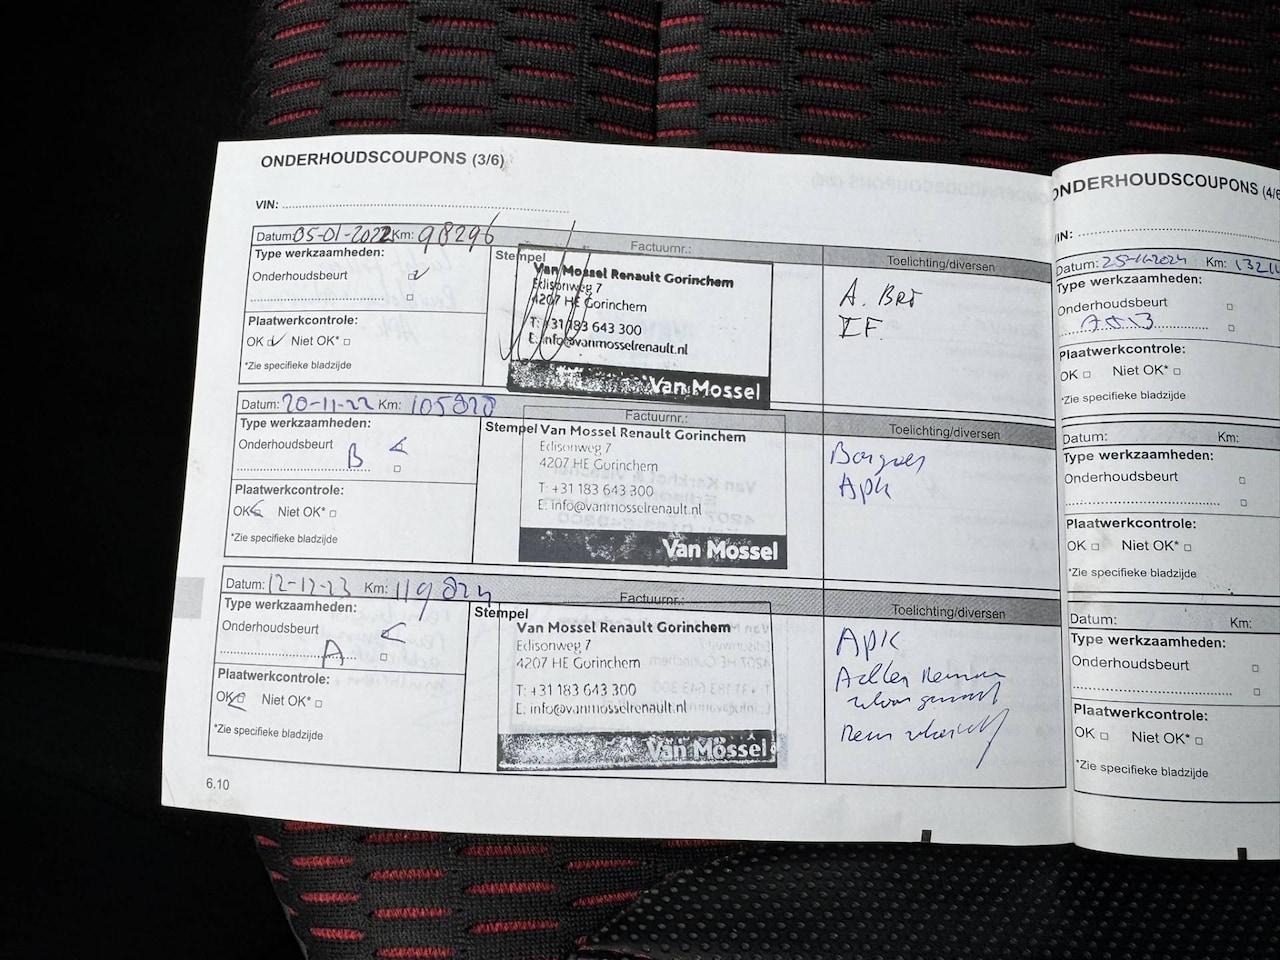 ONDERHOUDSCOUPONS (3/6)
VIN:
Datum: 05-01-2022 Km: 98296
Factuurnr.:
Type werkzaamheden:
Onderhoudsbeurt
Plaatwerkcontrole:
OK Niet OK*
*Zie specifieke bladzijde
Stempel
Van Mossel Renault Gorinchem
Edisonweg 7
4207 HE Gorinchem
T: +31 183 643 300
E: info@vanmosselrenault.nl
Van Mossel
Toelichting/diversen
A. Brt
I.F.
Datum: 20-11-22 Km: 105828
Factuurnr.:
Type werkzaamheden:
Onderhoudsbeurt
B
Plaatwerkcontrole:
OK Niet OK*
*Zie specifieke bladzijde
Stempel
Van Mossel Renault Gorinchem
Edisonweg 7
4207 HE Gorinchem
T: +31 183 643 300
E: info@vanmosselrenault.nl
Van Mossel
Toelichting/diversen
Apk
Datum: 12-12-23 Km: 119824
Factuurnr.:
Type werkzaamheden:
Onderhoudsbeurt
A
Plaatwerkcontrole:
OK Niet OK*
*Zie specifieke bladzijde
Stempel
Van Mossel Renault Gorinchem
Edisonweg 7
4207 HE Gorinchem
T: +31 183 643 300
E: info@vanmosselrenault.nl
Van Mossel
Toelichting/diversen
APK
Achter Remmen
Rem
6.10
ONDERHOUDSCOUPONS (4/6
VIN:
Datum: Km:
Type werkzaamheden:
Onderhoudsbeurt
Plaatwerkcontrole:
OK Niet OK*
*Zie specifieke bladzijde
Datum: Km:
Type werkzaamheden:
Onderhoudsbeurt
Plaatwerkcontrole:
OK Niet OK*
*Zie specifieke bladzijde
Datum: Km:
Type werkzaamheden:
Onderhoudsbeurt
Plaatwerkcontrole:
OK Niet OK*
*Zie specifieke bladzijde